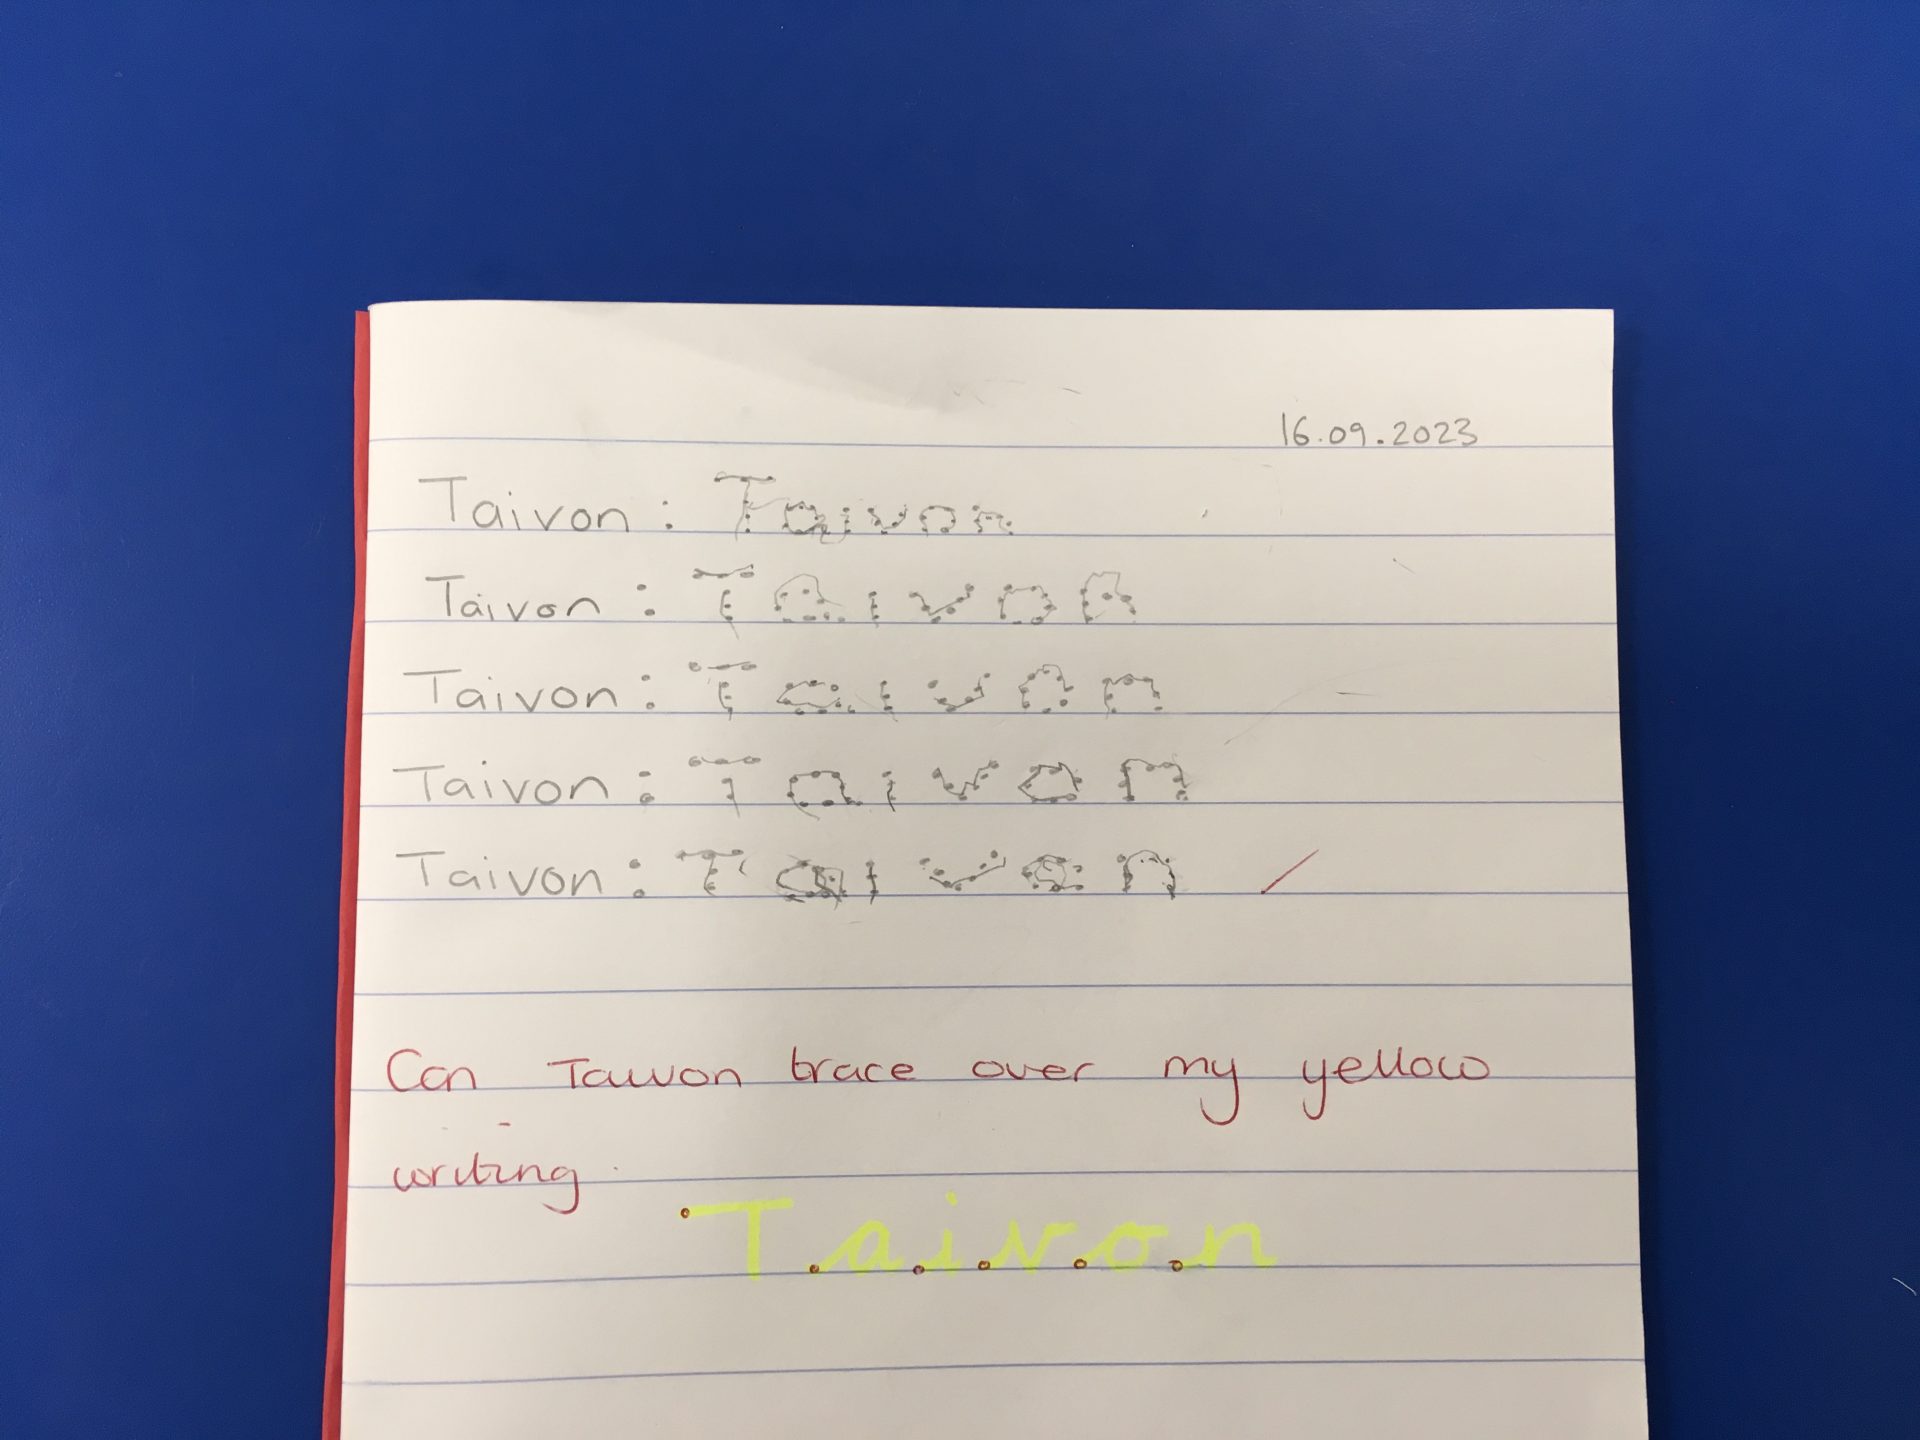 16.09.2023
Taivon : Taivon
Taivon : Taivon
Taivon : Taivon
Taivon : Taivon
Taivon : Taivon
Can Taivon trace over my yellow
writing.
Taivon